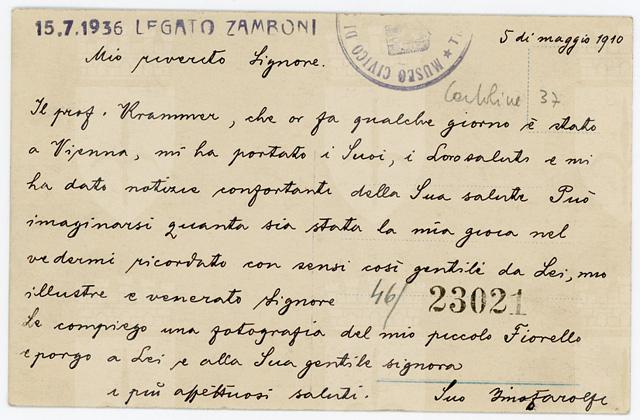 15.7.1936 LEGATO ZAMBONI
MUSEO CIVICO DI
5 di maggio 1910
Mio riverito Signore.
Cartoline 37
Il prof. Krammer, che or fa qualche giorno è stato
a Vienna, mi ha portato i Suoi, i Loro saluti e mi
ha dato notizie confortanti della Sua salute Può
imaginarsi quanta sia stata la mia gioia nel
vedermi ricordato con sensi così gentili da Lei, mio
illustre e venerato Signore
46/ 23021
Le compiego una fotografia del mio piccolo Fiorello
e porgo a Lei e alla Sua gentile signora
i più affettuosi saluti. Suo